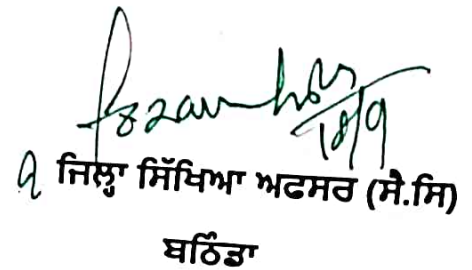 18/9
ਜਿਲ੍ਹਾ ਸਿੱਖਿਆ ਅਫਸਰ (ਸੈ.ਸਿ)
ਬਠਿੰਡਾ